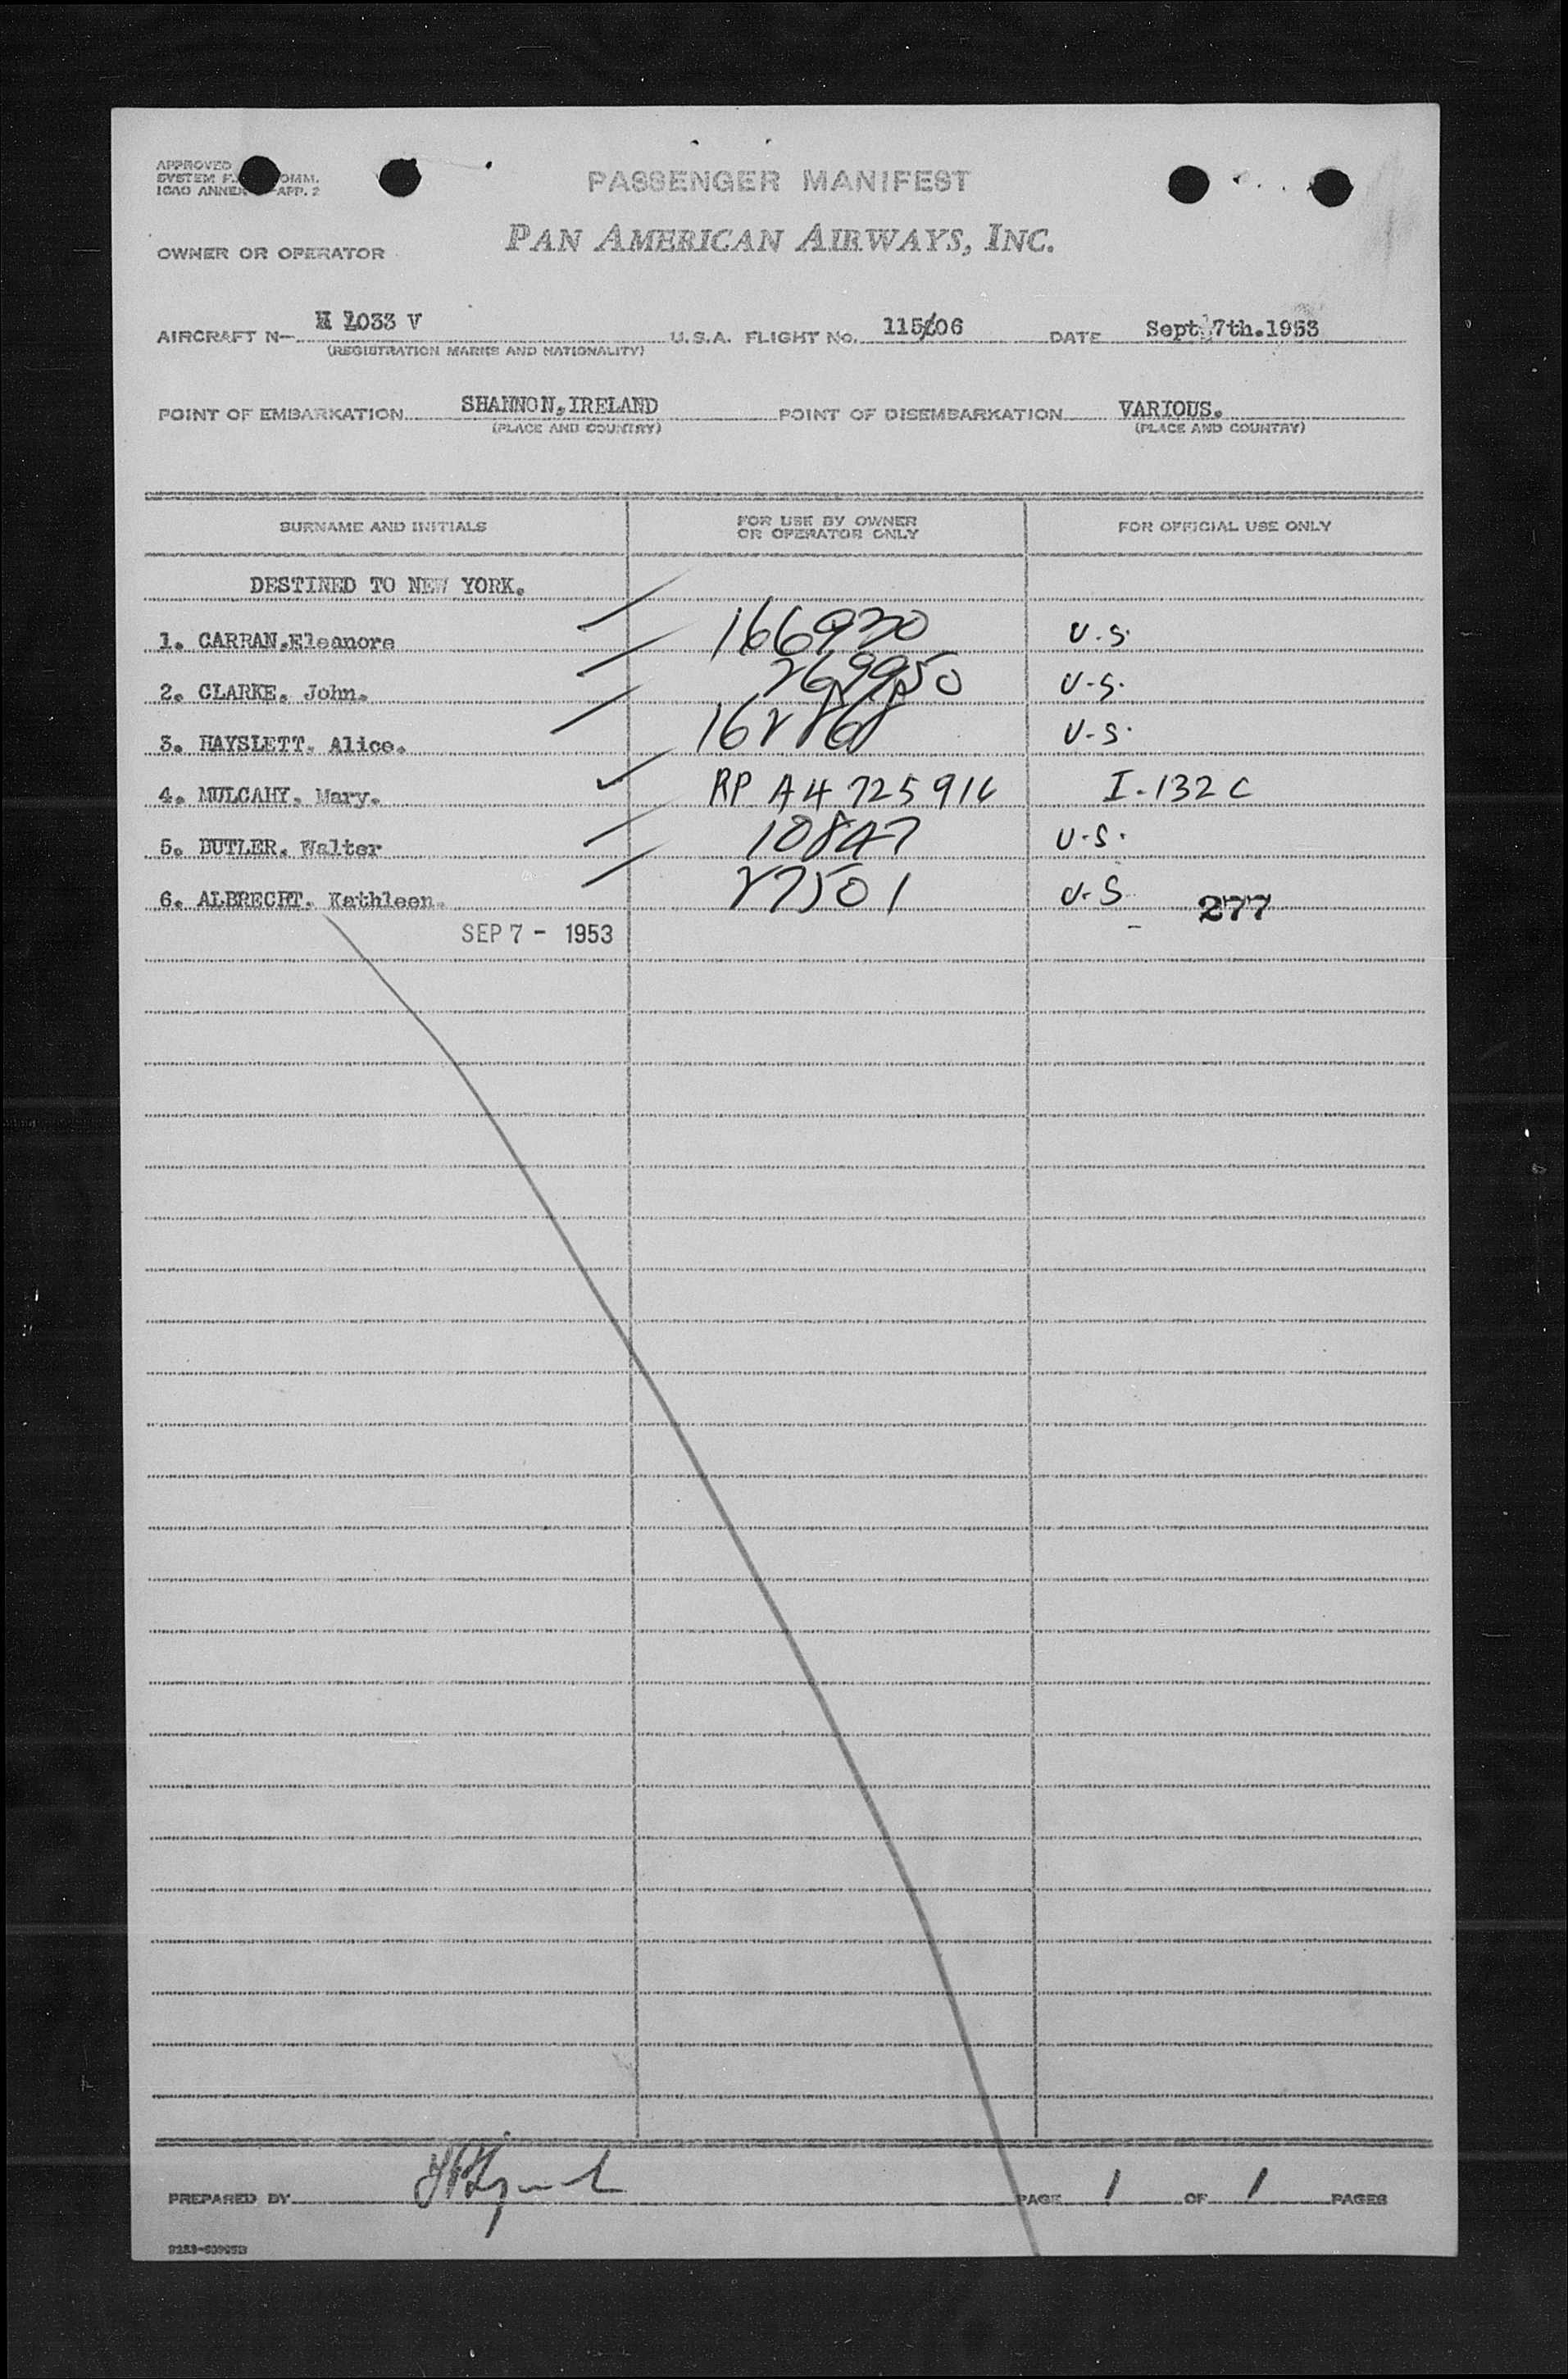 APPROVED
SYSTEM F. OMM.
ICAO ANNEX APP. 2
PASSENGER MANIFEST
OWNER OR OPERATOR PAN AMERICAN AIRWAYS, INC.
AIRCRAFT N- 1033 V U.S.A. FLIGHT No. 115/06 DATE Sept. 7th. 1953
(REGISTRATION MARKS AND NATIONALITY)
POINT OF EMBARKATION SHANNON, IRELAND POINT OF DISEMBARKATION VARIOUS.
(PLACE AND COUNTRY) (PLACE AND COUNTRY)
SURNAME AND INITIALS FOR USE BY OWNER OR OPERATOR ONLY FOR OFFICIAL USE ONLY
DESTINED TO NEW YORK.
1. CARRAN.Eleanore 166920 U.S.
2. CLARKE. John. 269950 U.S.
3. HAYSLETT. Alice. 162868 U.S.
4. MULCAHY. Mary. RP A4 725916 I-132 C
5. BUTLER. Walter 10847 U.S.
6. ALBRECHT. Kathleen. 27501 U.S 277
SEP 7 - 1953
PREPARED BY PAGE 1 OF 1 PAGES